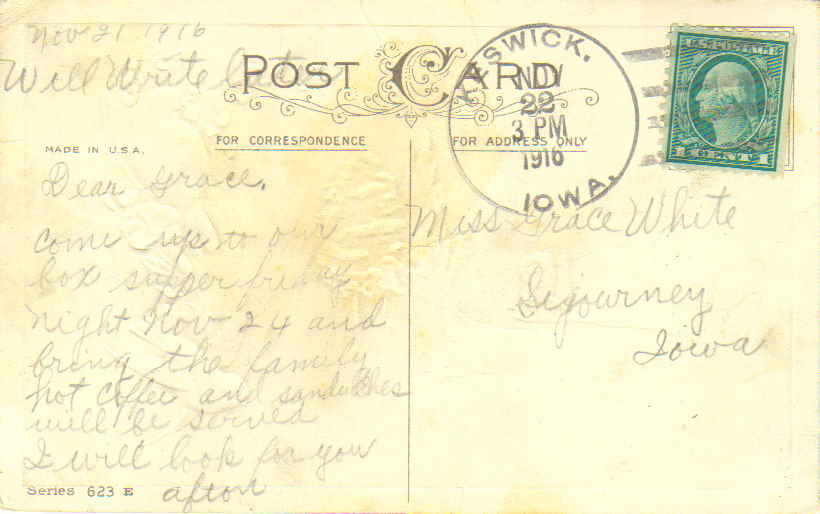 Nov 21 1916
Will Write Later
POST CARD
KESWICK.
NOV
22
3 PM
1916
IOWA.
U.S. POSTAGE
FOR CORRESPONDENCE
FOR ADDRESS ONLY
MADE IN U.S.A.
Dear Grace.
come up to our
box supper friday
night Nov 24 and
bring the family
hot coffee and sandwiches
will be served
I will look for you
afton
Series 623 E
Miss Grace White
Sigourney
Iowa